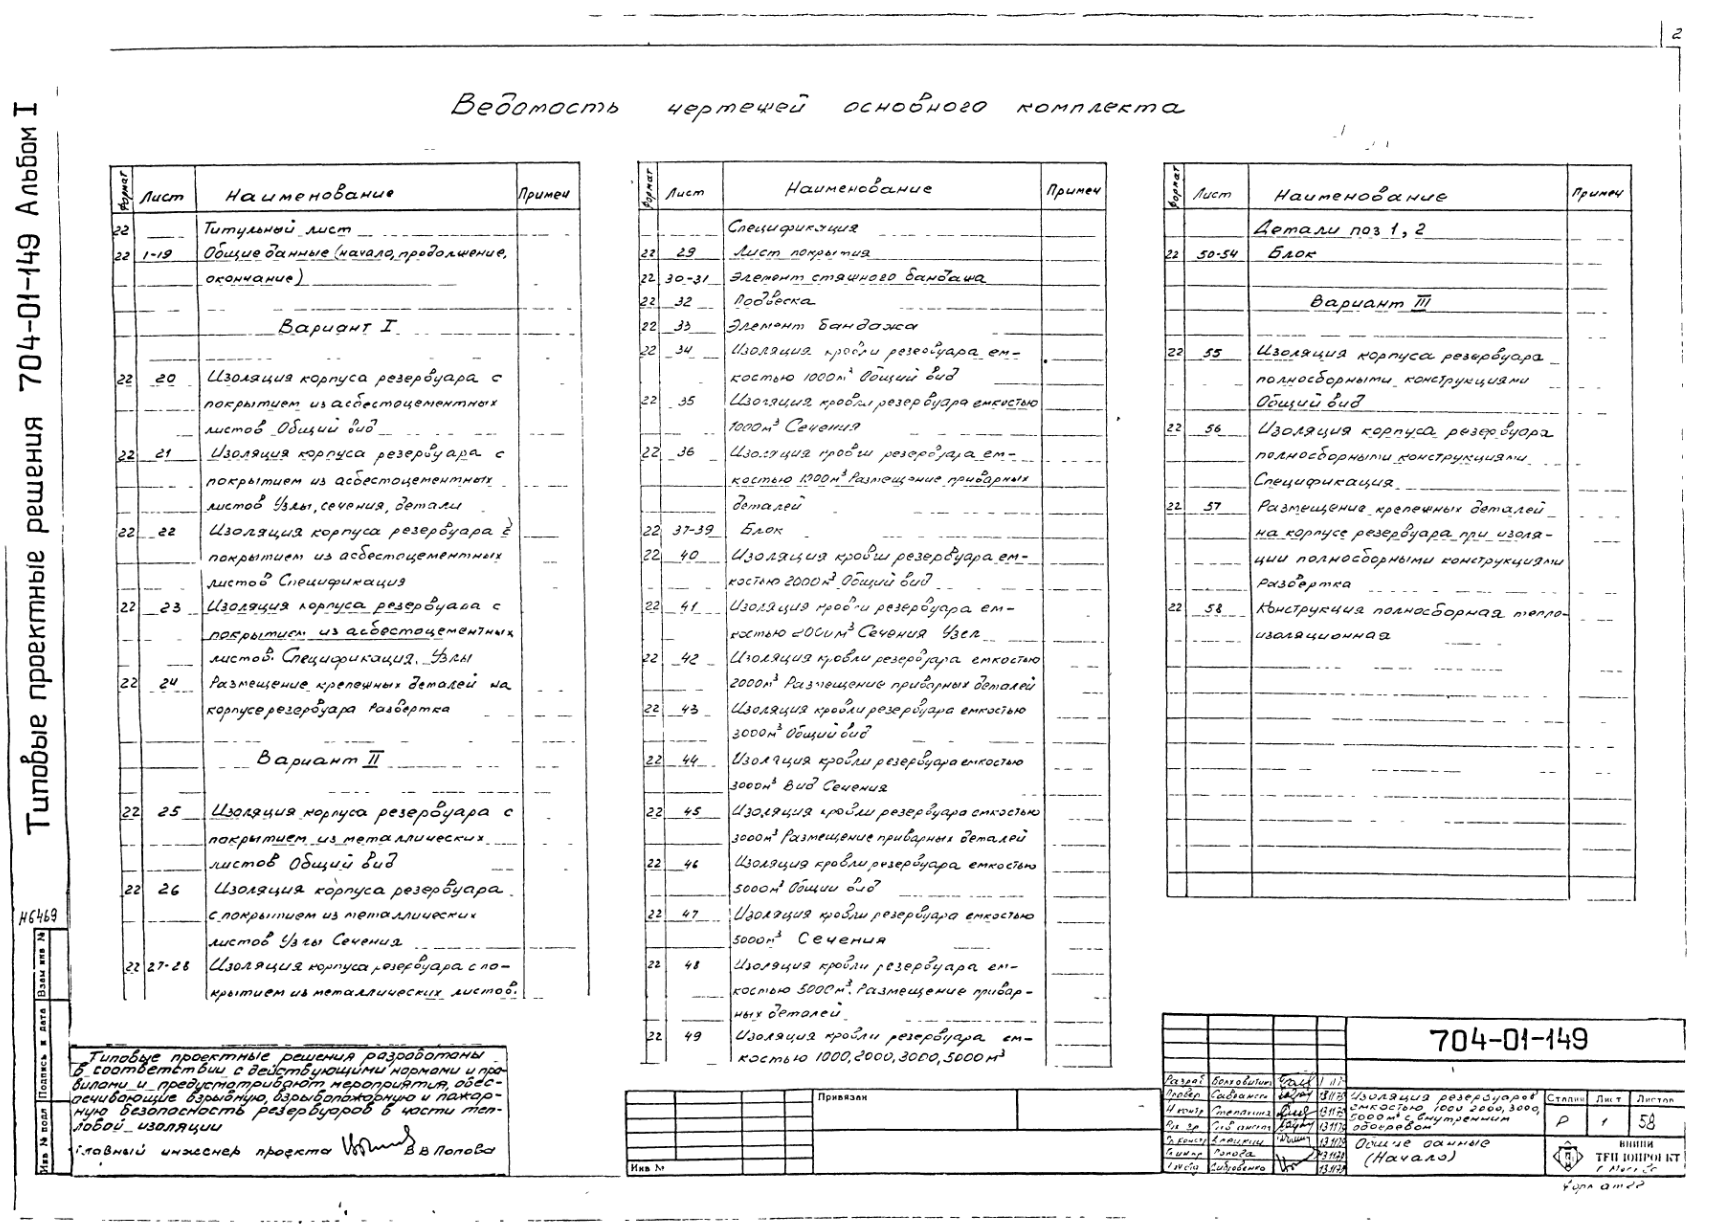 2
Типовые проектные решения 704-01-149 Альбом I
Ведомость чертежей основного комплекта
Формат Лист Наименование Примеч
22 Титульный лист
22 1-19 Общие данные (начало, продолжение,
окончание)
Вариант I
22 20 Изоляция корпуса резервуара с
покрытием из асбестоцементных
листов Общий вид
22 21 Изоляция корпуса резервуара с
покрытием из асбестоцементных
листов Узлы, сечения, детали
22 22 Изоляция корпуса резервуара с
покрытием из асбестоцементных
листов Спецификация
22 23 Изоляция корпуса резервуара с
покрытием из асбестоцементных
листов. Спецификация. Узлы
22 24 Размещение крепежных деталей на
корпусе резервуара Развертка
Вариант II
22 25 Изоляция корпуса резервуара с
покрытием из металлических
листов Общий вид
22 26 Изоляция корпуса резервуара
с покрытием из металлических
листов Узлы Сечения
22 27-28 Изоляция корпуса резервуара с по-
крытием из металлических листов.
Формат Лист Наименование Примеч
Спецификация
22 29 Лист покрытия
22 30-31 Элемент стяжного бандажа
22 32 Подвеска
22 33 Элемент бандажа
22 34 Изоляция кровли резервуара ем-
костью 1000м³ Общий вид
22 35 Изоляция кровли резервуара емкостью
1000м³ Сечения
22 36 Изоляция кровли резервуара ем-
костью 1000м³ Размещение приварных
деталей
22 37-39 Блок
22 40 Изоляция кровли резервуара ем-
костью 2000м³ Общий вид
22 41 Изоляция кровли резервуара ем-
костью 2000м³ Сечения Узел
22 42 Изоляция кровли резервуара емкостью
2000м³ Размещение приварных деталей
22 43 Изоляция кровли резервуара емкостью
3000м³ Общий вид
22 44 Изоляция кровли резервуара емкостью
3000м³ Вид Сечения
22 45 Изоляция кровли резервуара емкостью
3000м³ Размещение приварных деталей
22 46 Изоляция кровли резервуара емкостью
5000м³ Общий вид
22 47 Изоляция кровли резервуара емкостью
5000м³ Сечения
22 48 Изоляция кровли резервуара ем-
костью 5000м³. Размещение привар-
ных деталей
22 49 Изоляция кровли резервуара ем-
костью 1000, 2000, 3000, 5000м³
Формат Лист Наименование Примеч
Детали поз 1, 2
22 50-54 Блок
Вариант III
22 55 Изоляция корпуса резервуара
полносборными конструкциями
Общий вид
22 56 Изоляция корпуса резервуара
полносборными конструкциями
Спецификация
22 57 Размещение крепежных деталей
на корпусе резервуара при изоля-
ции полносборными конструкциями
Развертка
22 58 Конструкция полносборная тепло-
изоляционная
Н6469
Взам инв №
Подпись и дата
Инв № подл
Типовые проектные решения разработаны
в соответствии с действующими нормами и пра-
вилами и предусматривают мероприятия, обес-
печивающие взрывную, взрывопожарную и пожар-
ную безопасность резервуаров в части теп-
ловой изоляции
Главный инженер проекта В В Попова
Привязан
Инв №
704-01-149
Разраб
Провер
Н контр Степанина 13.11.79
Попова
Изоляция резервуаров
емкостью 1000 2000, 3000,
5000м³ с внутренним
обогревом
Стадия Лист Листов
Р 1 58
Общие данные
(Начало)
ВНИПИ
ТЕПЛОПРОЕКТ
г Москва
Формат 22